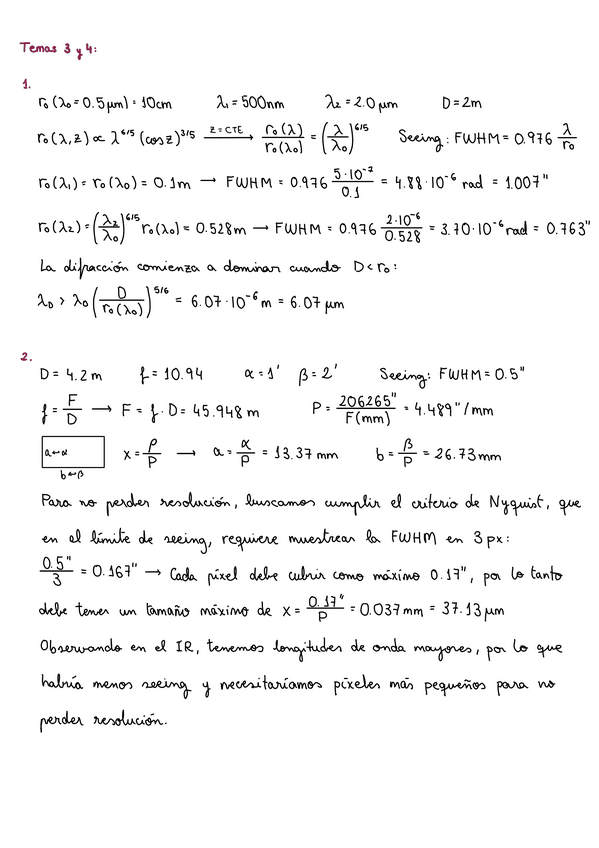 Temas 3 y 4:
1.
r₀(λ₀=0.5μm)=10cm λ₁=500nm λ₂=2.0μm D=2m
r₀(λ,z) ∝ λ^6/5 (cos z)^3/5 —z=CTE→ r₀(λ)/r₀(λ₀) = (λ/λ₀)^6/5 Seeing: FWHM=0.976 λ/r₀
r₀(λ₁)=r₀(λ₀)=0.1m → FWHM=0.976 5·10^-7/0.1 = 4.88·10^-6 rad = 1.007"
r₀(λ₂)=(λ₂/λ₀)^6/5 r₀(λ₀)=0.528m → FWHM=0.976 2·10^-6/0.528 = 3.70·10^-6 rad = 0.763"
La difracción comienza a dominar cuando D<r₀:
λ_D > λ₀ (D/r₀(λ₀))^5/6 = 6.07·10^-6 m = 6.07 μm
2.
D=4.2m f=10.94 α=1' β=2' Seeing: FWHM=0.5"
f=F/D → F=f·D=45.948m P=206265"/F(mm) = 4.489"/mm
a↔α x=ρ/P → a=α/P=13.37mm b=β/P=26.73mm
b↔β
Para no perder resolución, buscamos cumplir el criterio de Nyquist, que
en el límite de seeing, requiere muestrear la FWHM en 3px:
0.5"/3 = 0.167" → Cada píxel debe cubrir como máximo 0.17", por lo tanto
debe tener un tamaño máximo de x=0.17"/P=0.037mm=37.13μm
Observando en el IR, tenemos longitudes de onda mayores, por lo que
habría menos seeing y necesitaríamos píxeles más pequeños para no
perder resolución.